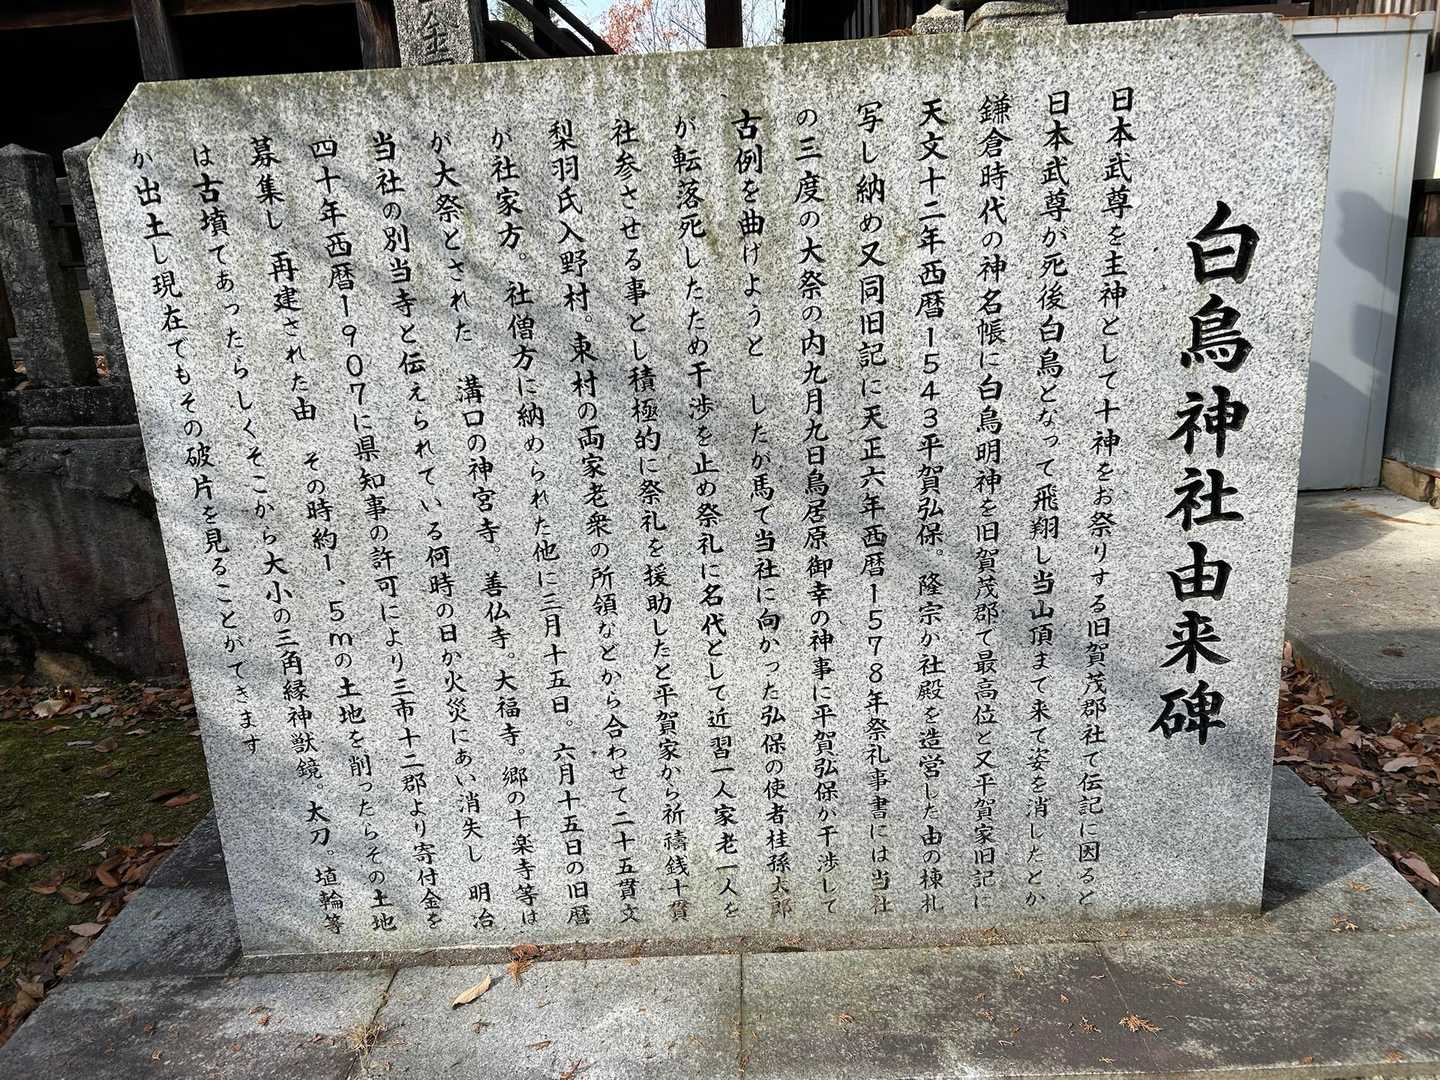 白鳥神社由来碑
日本武尊を主神として十神をお祭りする旧賀茂郡社で伝記に因ると
日本武尊が死後白鳥となって飛翔し当山頂まで来て姿を消したとか
鎌倉時代の神名帳に白鳥明神を旧賀茂郡で最高位と又平賀家旧記に
天文十二年西暦1543平賀弘保。隆宗か社殿を造営した由の棟札
写し納め又同旧記に天正六年西暦1578年祭礼事書には当社
の三度の大祭の内九月九日鳥居原御幸の神事に平賀弘保か干渉して
古例を曲げようと したが馬で当社に向かった弘保の使者桂孫太郎
が転落死したため干渉を止め祭礼に名代として近習一人家老一人を
社参させる事とし積極的に祭礼を援助したと平賀家から祈禱銭十貫
梨羽氏入野村。東村の両家老衆の所領などから合わせて二十五貫文
が社家方。社僧方に納められた他に三月十五日。六月十五日の旧暦
が大祭とされた 溝口の神宮寺。善仏寺。大福寺。郷の十楽寺等は
当社の別当寺と伝えられている何時の日か火災にあい消失し 明治
四十年西暦1907に県知事の許可により三市十二郡より寄付金を
募集し 再建された由 その時約1、5mの土地を削ったらその土地
は古墳であったらしくそこから大小の三角縁神獣鏡。太刀。埴輪等
か出土し現在でもその破片を見ることができます